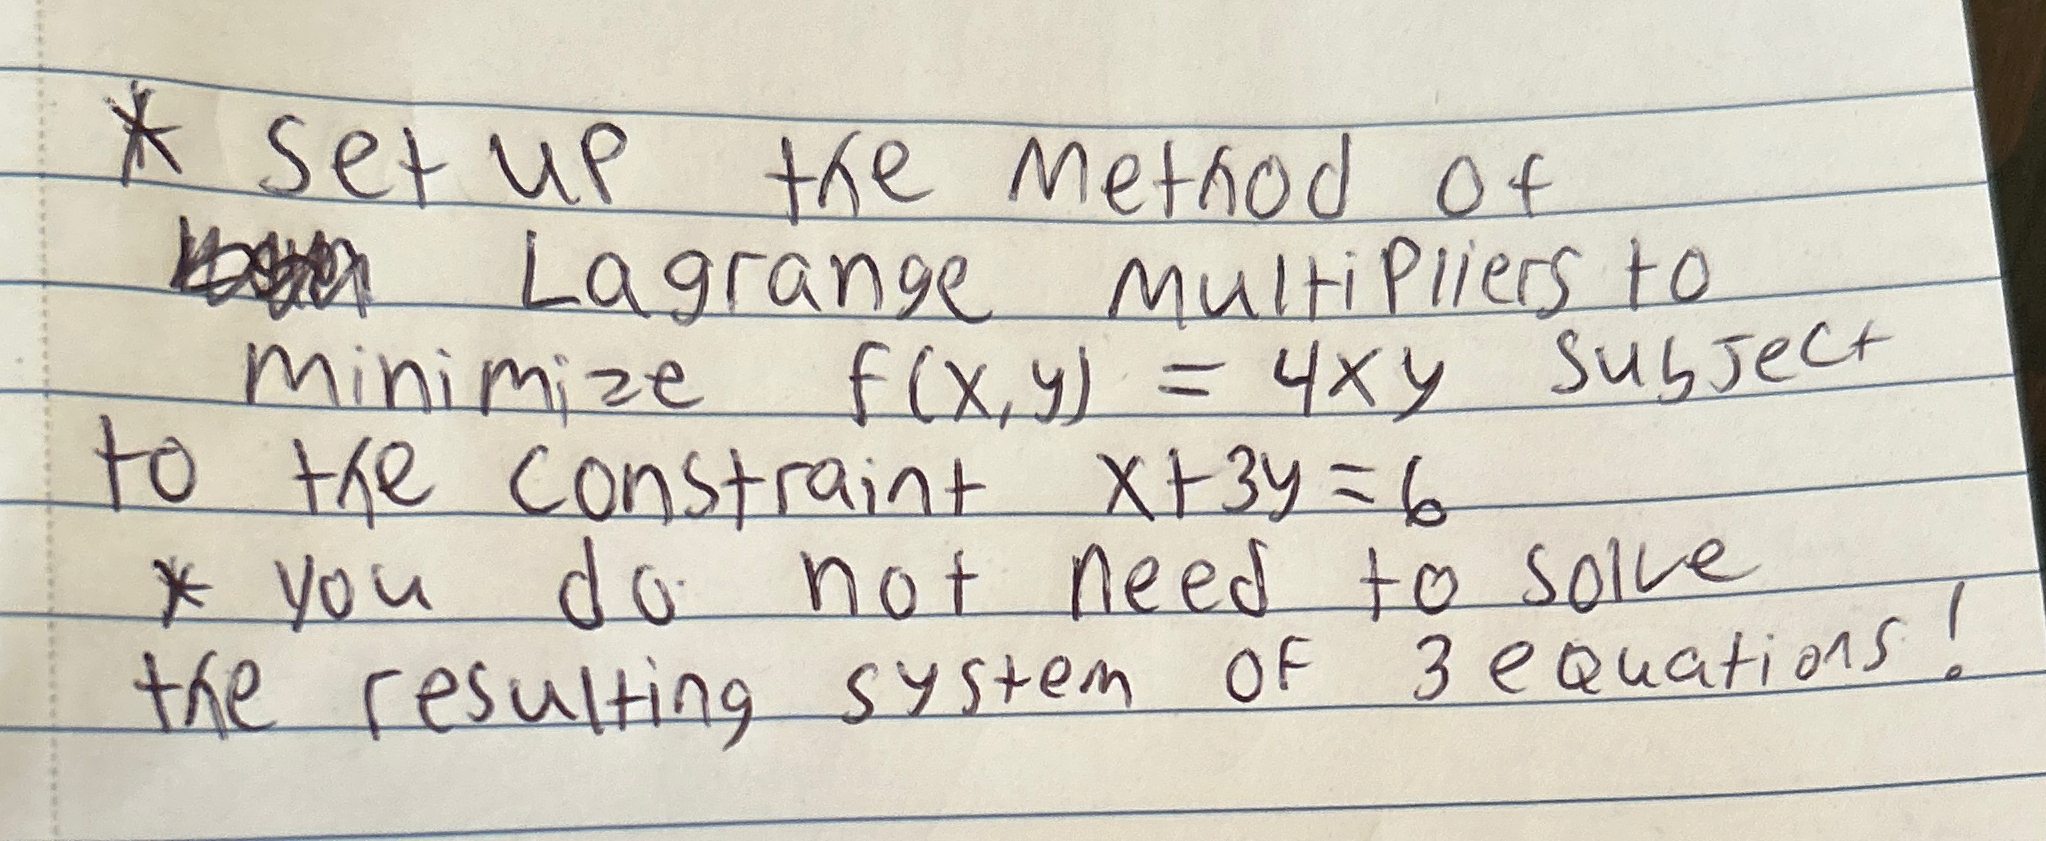 * Set up the Method of
Lagrange Multipliers to
minimize f(x,y) = 4xy subject
to the constraint x+3y=6
* you do not need to solve
the resulting system of 3 equations!